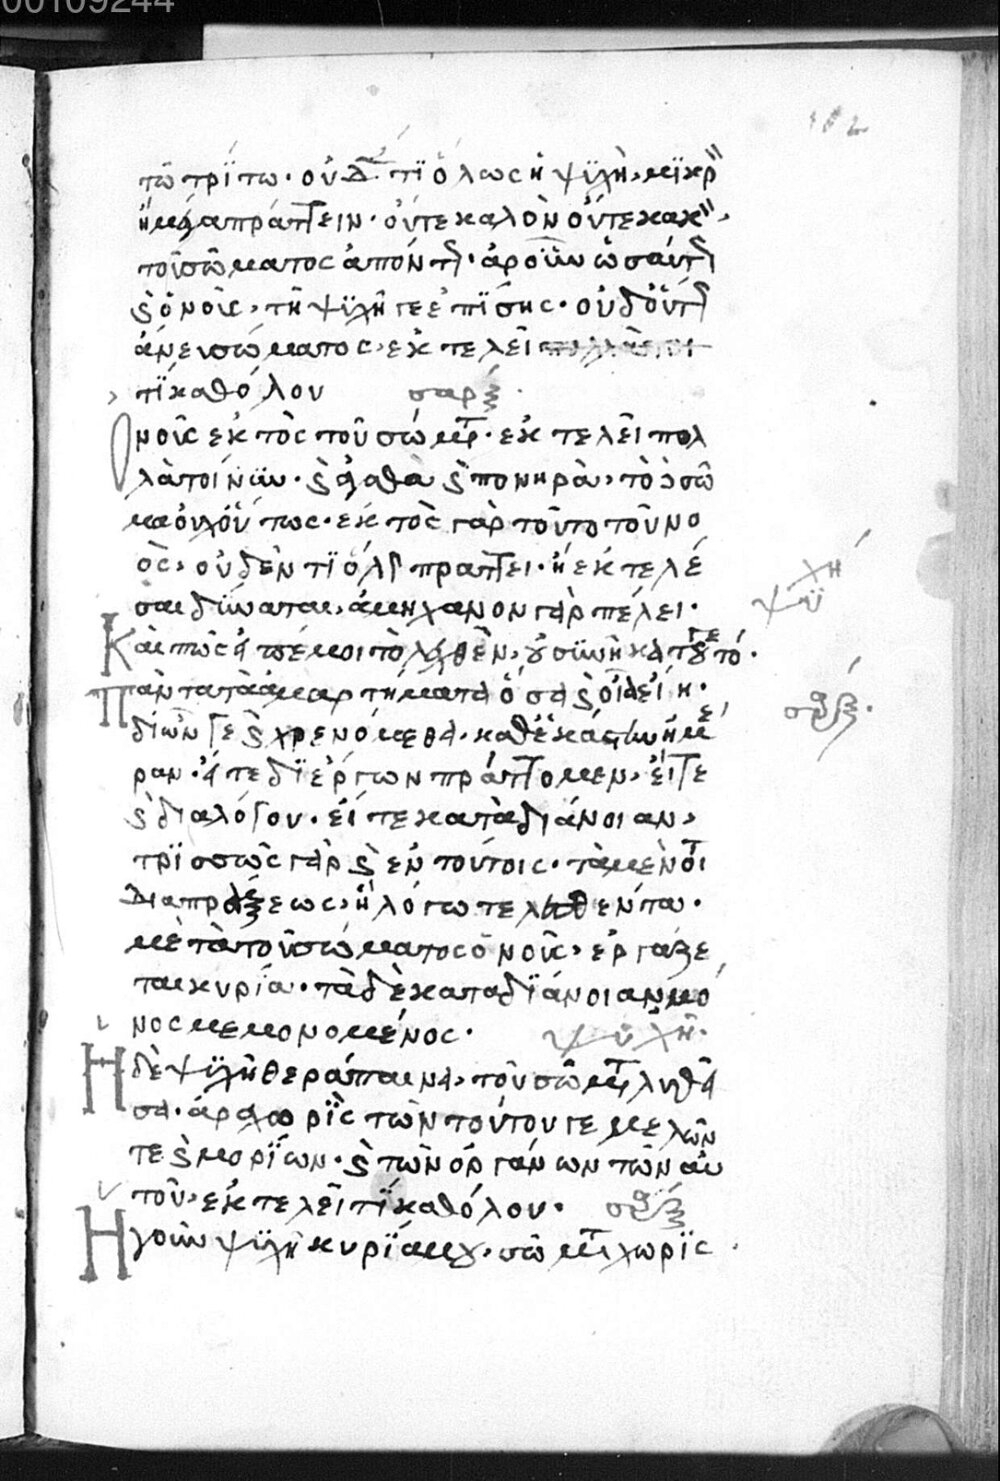 00109244
102
τῶ τρίτω· οὐδέ τι ὅλως ἡ ψυχὴ, μικρὸν
ἢ μέγα πράττειν· οὔτε καλὸν οὔτε κακὸν,
τοῦ σώματος ἀπόντος· ἆρ οὖν ὡσαύτως
καὶ ὁ νοῦς, τῆ ψυχῆ γε ἐπίσης· οὐδ οὕτως
ἄνευ σώματος, ἐκτελεῖ
τί καθόλου σαρξ·
Ὁ νοῦς ἐκτὸς τοῦ σώματος· ἐκτελεῖ πολ
λὰ τοίνυν· καὶ ἀγαθὰ καὶ πονηρὰ, τὸ δὲ σῶ
μα οὐχ οὕτως· ἐκτὸς γὰρ τοῦτο τοῦ νο
ὸς, οὐδέν τι ὅλως πράττει· ἢ ἐκτελέ
σαι δύναται, ἀμήχανον γὰρ πέλει·
ψυχή
Καὶ πῶς εἰπέ μοι τὸ λεχθὲν, συσταίη κατά γε τοῦτό·
Πάντα τὰ ἁμαρτήματα ὅσα καὶ οἷα εἴη·
σαρξ·
δι ὧν γε καὶ χρενόμεθα· καθ ἑκάστην ἡμέ
ραν· εἴτε δι ἔργων πράττομεν, εἴτε
καὶ διὰ λόγου· εἴτε κατὰ διάνοιαν,
τρισσῶς γὰρ καὶ ἐν τούτοις· τὰ μὲν ὅτι
διαπράξεως, ἢ λόγω τελεσθέντα·
μετὰ τοῦ σώματος ὁ νοῦς, ἐργάζε
ται κυρία· τὰ δὲ κατὰ διάνοιαν μό
νος μεμονομένος· ψυχῆ·
Ἡ δὲ ψυχὴ θεράπαινα, τοῦ σώματος λυθεῖ
σα· ἆρα χωρὶς τῶν τούτου γε μελῶν
τε καὶ μορίων· καὶ τῶν ὀργάνων τῶν αὐ
τοῦ, ἐκτελεῖ τί καθόλου· σαρξ
Ἡ γοῦν ψυχὴ κυρία μου, σώματος χωρὶς